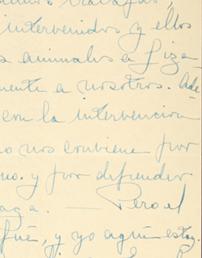 intervenidos y ellos
s animales a fiza-
mente a nosotros. Ade
con la intervencion
o nos conviene por
no. y por difender
aga. — Pero el
fué, y yo aquí estoy.